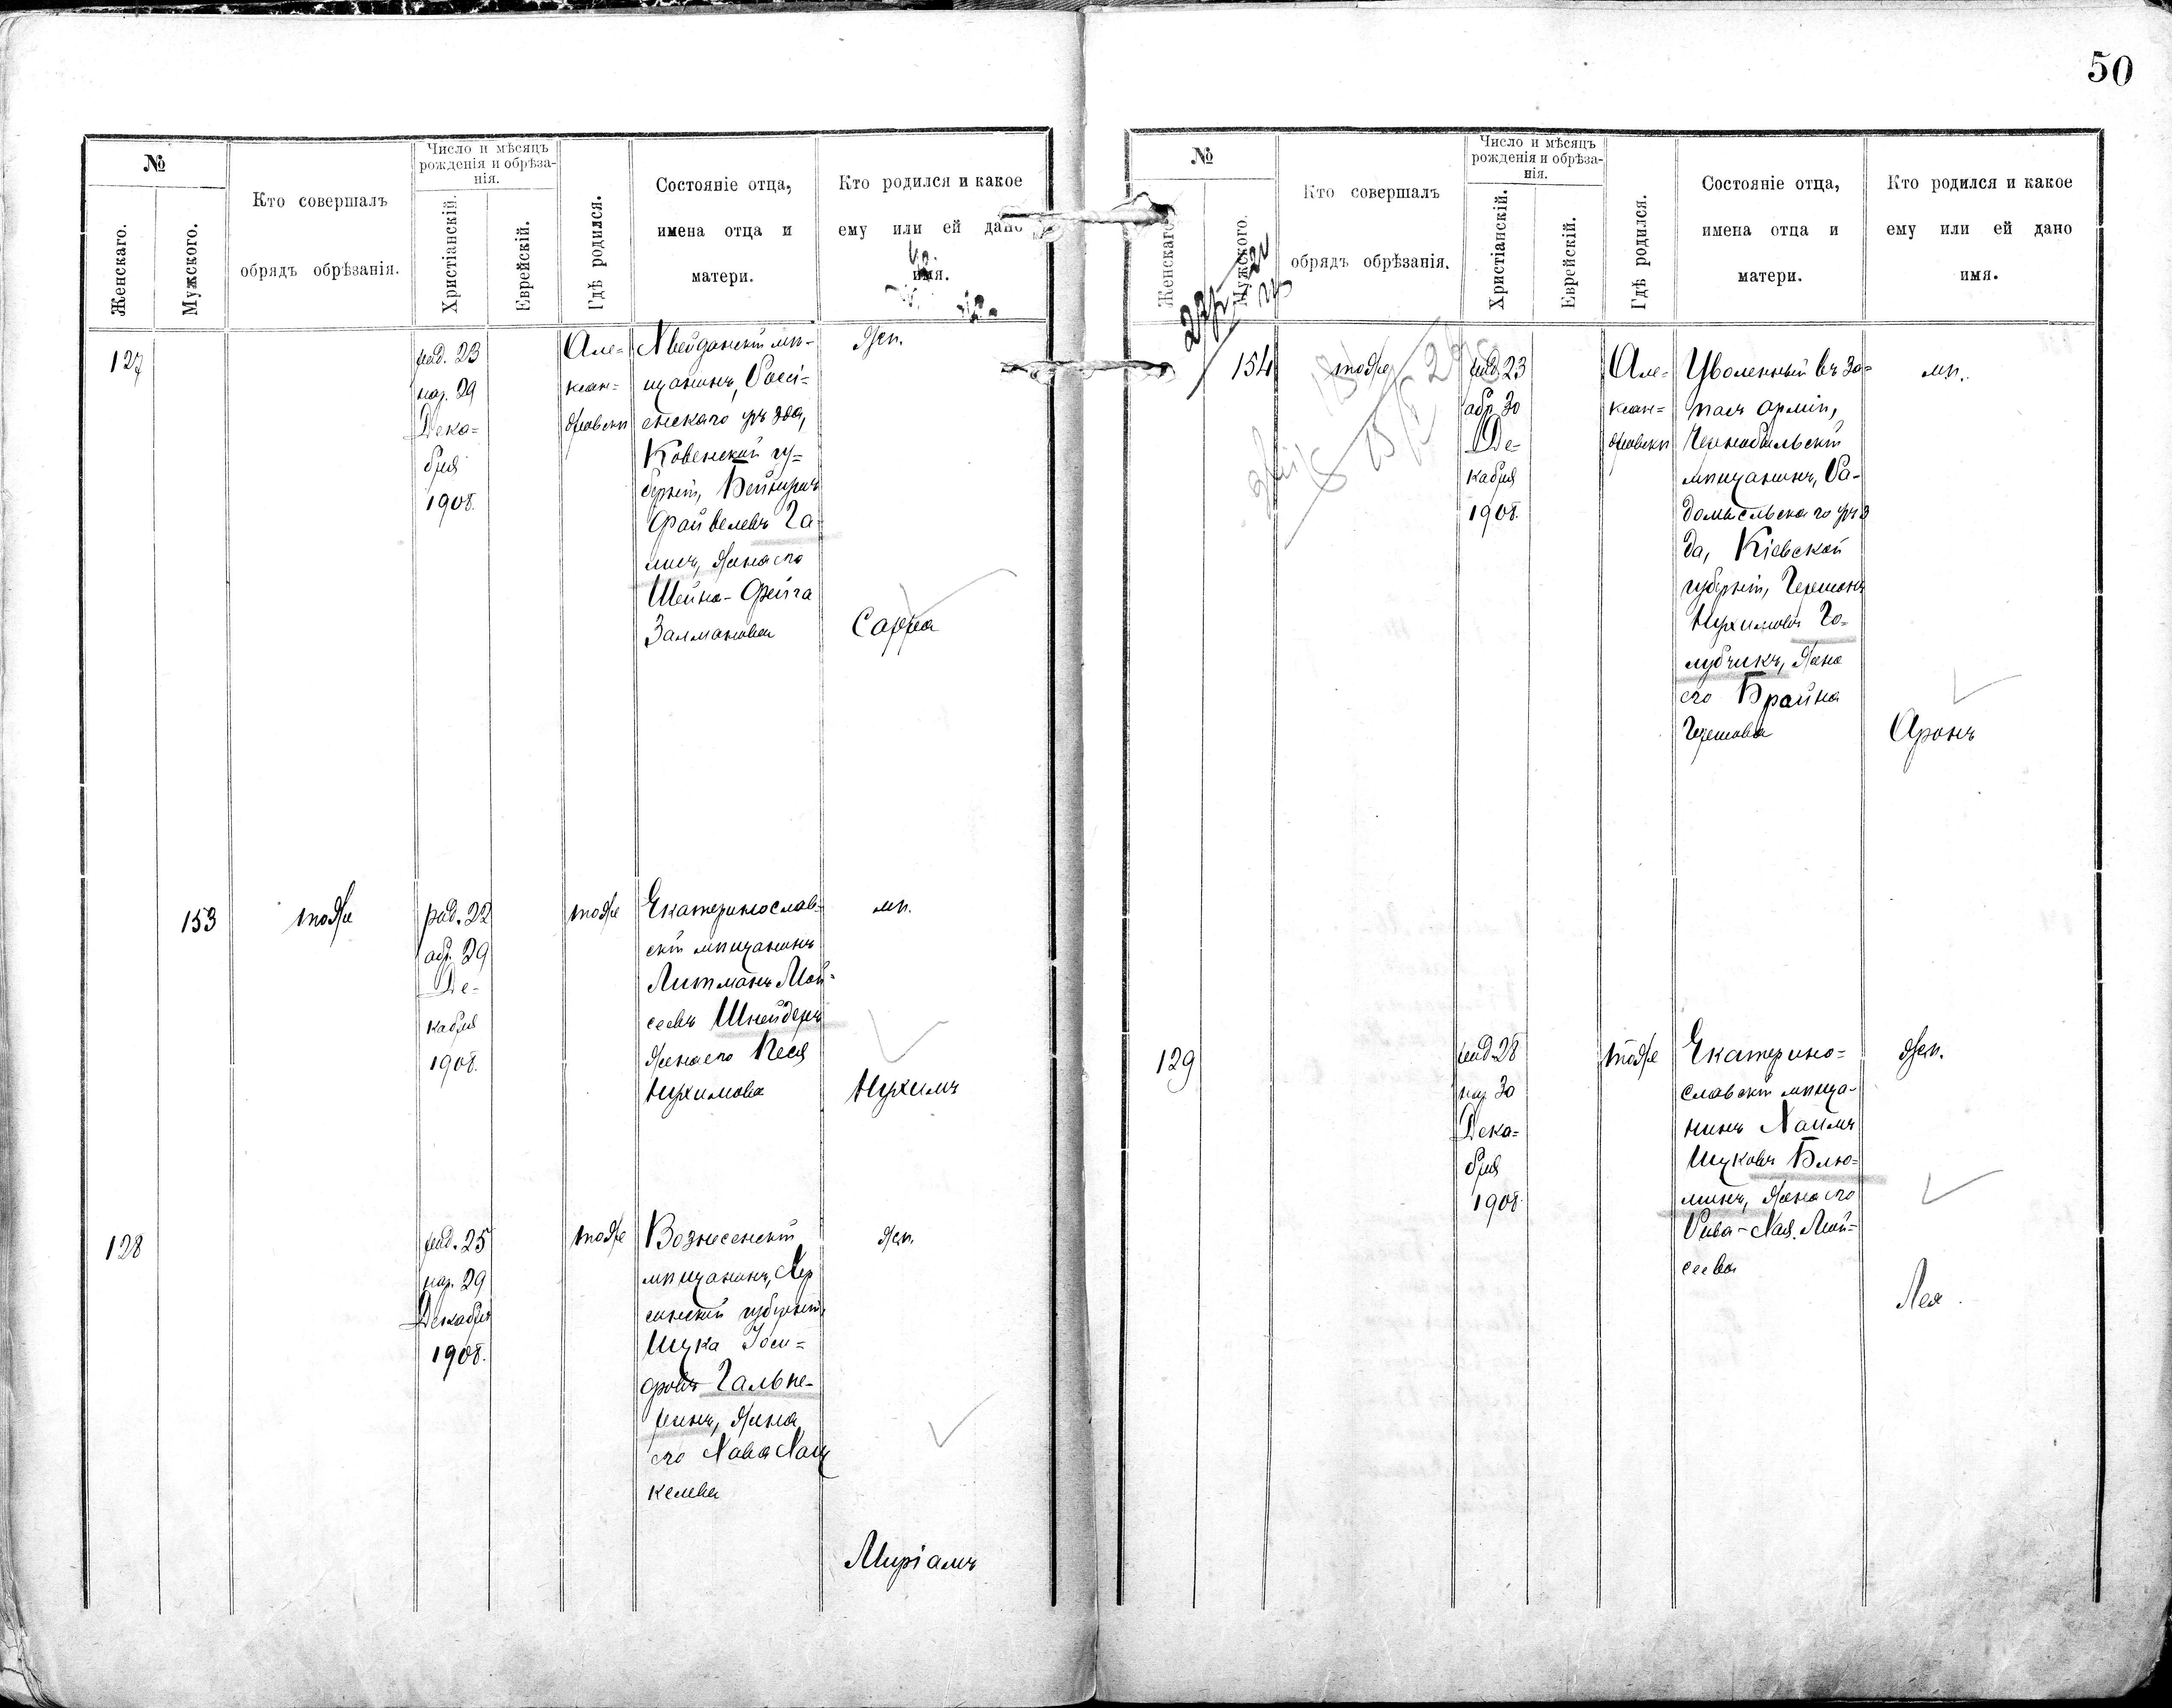 50
№
Женскаго.
Мужского.
Кто совершалъ
обрядъ обрѣзанія.
Число и мѣсяцъ
рожденія и обрѣза-
нія.
Христіанскій.
Еврейскій.
Гдѣ родился.
Состояніе отца,
имена отца и
матери.
Кто родился и какое
ему или ей дано
имя.
127
рид. 23
нар. 29
Дека=
бря
1908.
Але=
ксан=
дровски
Хвейданскій мѣ-
щанинъ, Россі=
енскаго уѣзда,
Ковенской гу-
берніи,
Файвелевъ Га-
жена его
Шейна-Фейга
Залманова
жен.
Сарра
153
тоже
рид. 22
обр. 29
Де-
кабря
1908.
тоже
Екатеринослав-
скій мѣщанинъ
Литманъ Мой-
сеевъ Шнейдеръ
жена его Песя
Нухимова
мѣ.
Нухимъ
128
рид. 25
нар. 29
Декабря
1908.
тоже
Вознесенскій
мѣщанинъ, Хер
сонской губерніи
Шука Іоси=
фовъ Гальпе-
ринъ, жена
его Хава Хац
келева
жен.
Миріамъ
№
Женскаго
Мужского.
Кто совершалъ
обрядъ обрѣзанія.
Число и мѣсяцъ
рожденія и обрѣза-
нія.
Христіанскій.
Еврейскій.
Гдѣ родился.
Состояніе отца,
имена отца и
матери.
Кто родился и какое
ему или ей дано
имя.
154
тоже
рид. 23
обр. 30
Де-
кабря
1908.
Але-
ксан=
дровски
Уволенный въ за=
пасъ арміи,
Чернобыльскій
мѣщанинъ, Ра-
домысльскаго уѣз
да, Кіевской
губерніи, Гершонъ
Нухимовъ Го-
лубчикъ, жена
его Брайна
Гершова
мѣ.
Аронъ
129
рид. 28
нар. 30
Дека=
бря
1908
тоже
Екатерино=
славскій мѣща-
нинъ Хаимъ
Ицковъ Блю=
минъ, жена его
Рива-Хая Мой=
сеева
жен.
Лея.